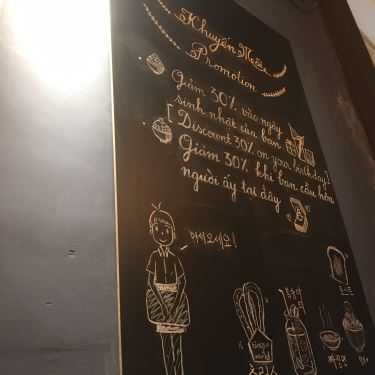 Khuyến Mãi
Promotion
Giảm 30% vào ngày
sinh nhật của bạn
[ Discount 30% on your birthday]
Giảm 30% khi bạn cầu hôn
người ấy tại đây
어서오세요!
츄러스